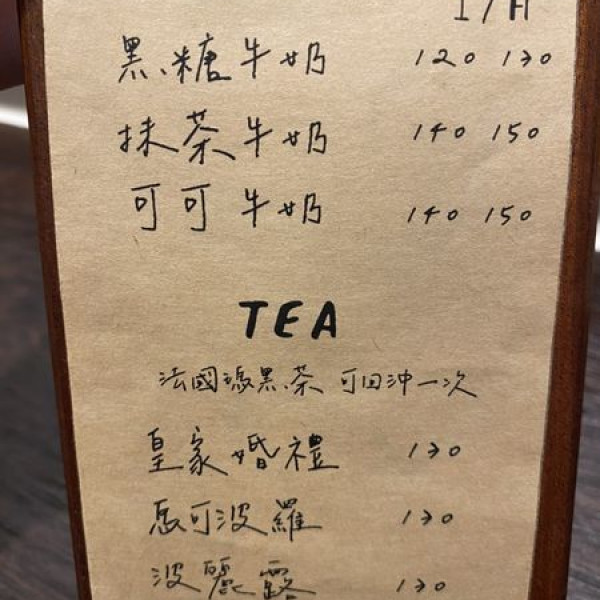 I/H
黑糖牛奶 120 130
抹茶牛奶 140 150
可可牛奶 140 150
TEA
法國瑪黑茶 可回沖一次
皇家婚禮 130
馬可波羅 130
波麗露 130